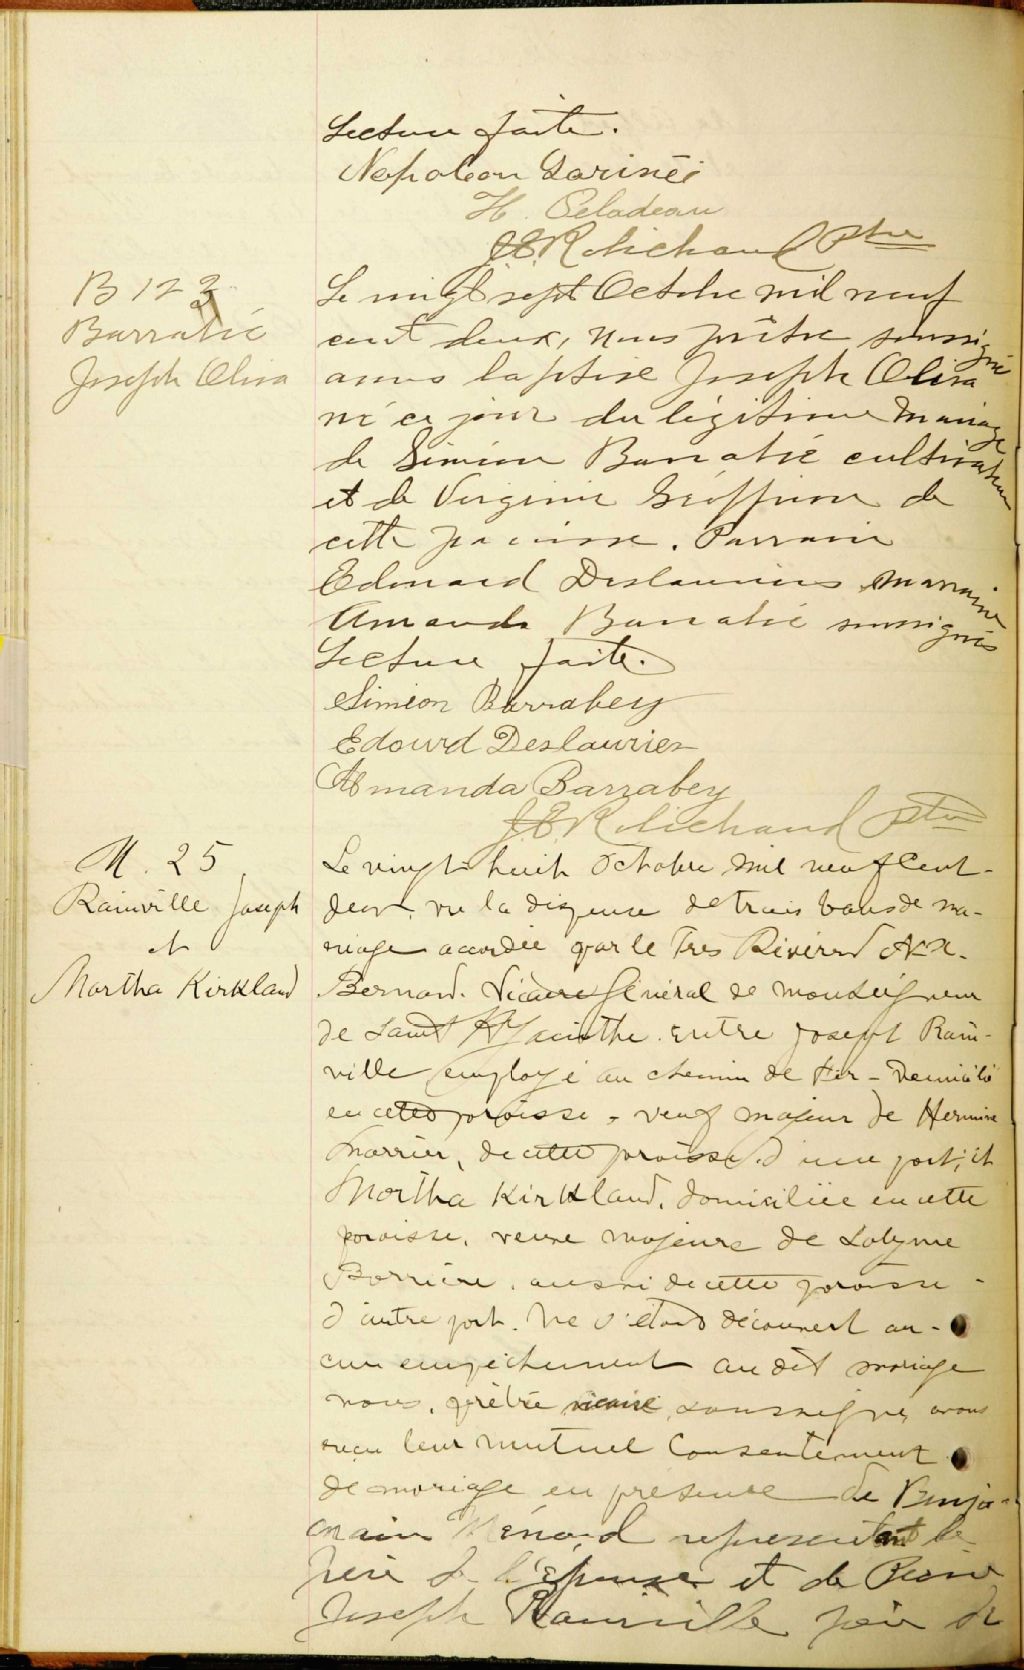 Lecture faite.
Napoleon Larivée
H. Celadeau
Ptre
B 123
Barrabé
Joseph Oliva
Le vingt sept Octobre mil neuf
cent deux, nous prêtre soussigné
avons baptisé Joseph Oliva
né ce jour du légitime mariage
de Siméon Barrabé cultivateur
et de Virginie Geoffrion de
cette paroisse. Parrain
Edouard Deslauriers marraine
Amanda Barrabé soussignés
Lecture faite.
Simèon Barrabey
Edourd Deslaurier
Amanda Barrabey
Ptre
M. 25
Rainville Joseph
et
Martha Kirkland
Le vingt huit Octobre mil neuf Cent-
deux, vu la dispense de trois bans de ma-
riage accordée par le Très Révérend
Bernard. Vicaire Général de monseigneur
de Saint Hyacinthe. entre Joseph Rain-
ville employé au chemin de fer - domicilié
en cette paroisse - veuf majeur de Hermine
de cette paroisse d'une part, et
Martha Kirkland, domiciliée en cette
paroisse, veuve majeure de
aussi de cette paroisse -
d'autre part. Ne s'étant découvert au-
cun empêchement au dit mariage
nous, prêtre vicaire soussigné, avons
reçu leur mutuel Consentement
de mariage en présence de Benja-
main Ménard representant le
père de l'épouse et de Pierre
Joseph Rainville père de